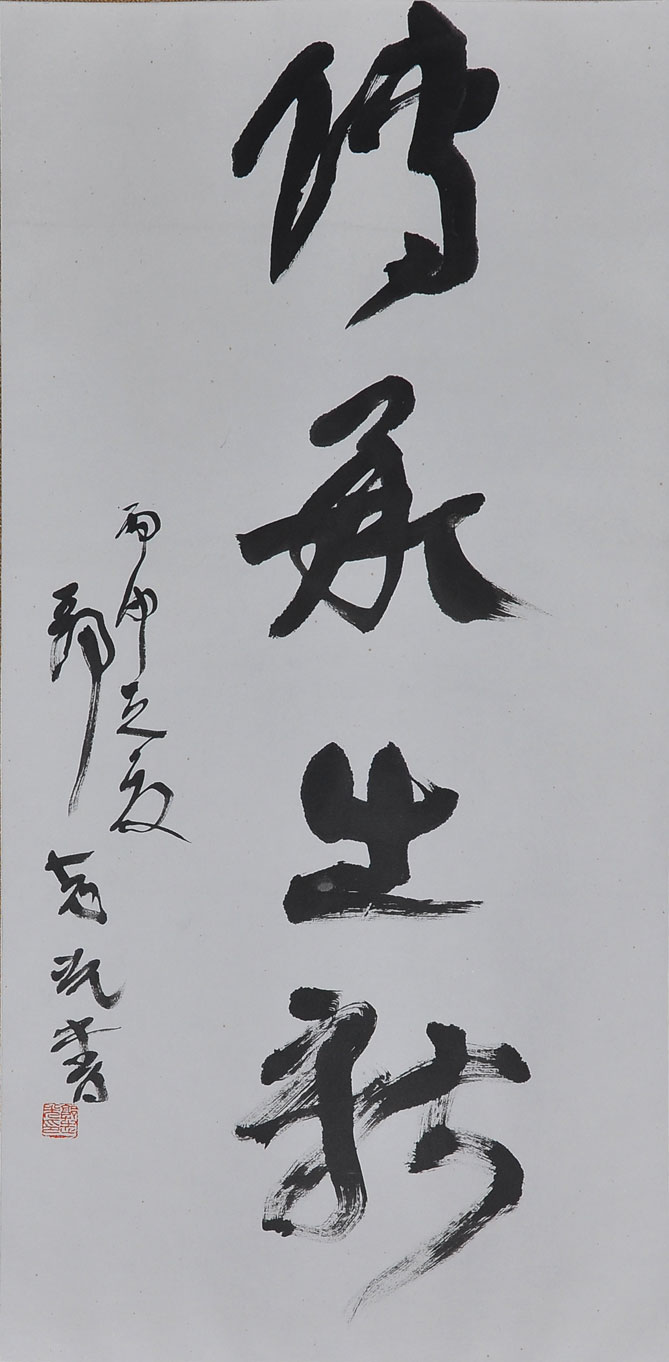 傳承出新
丙申之夏
郭志光書